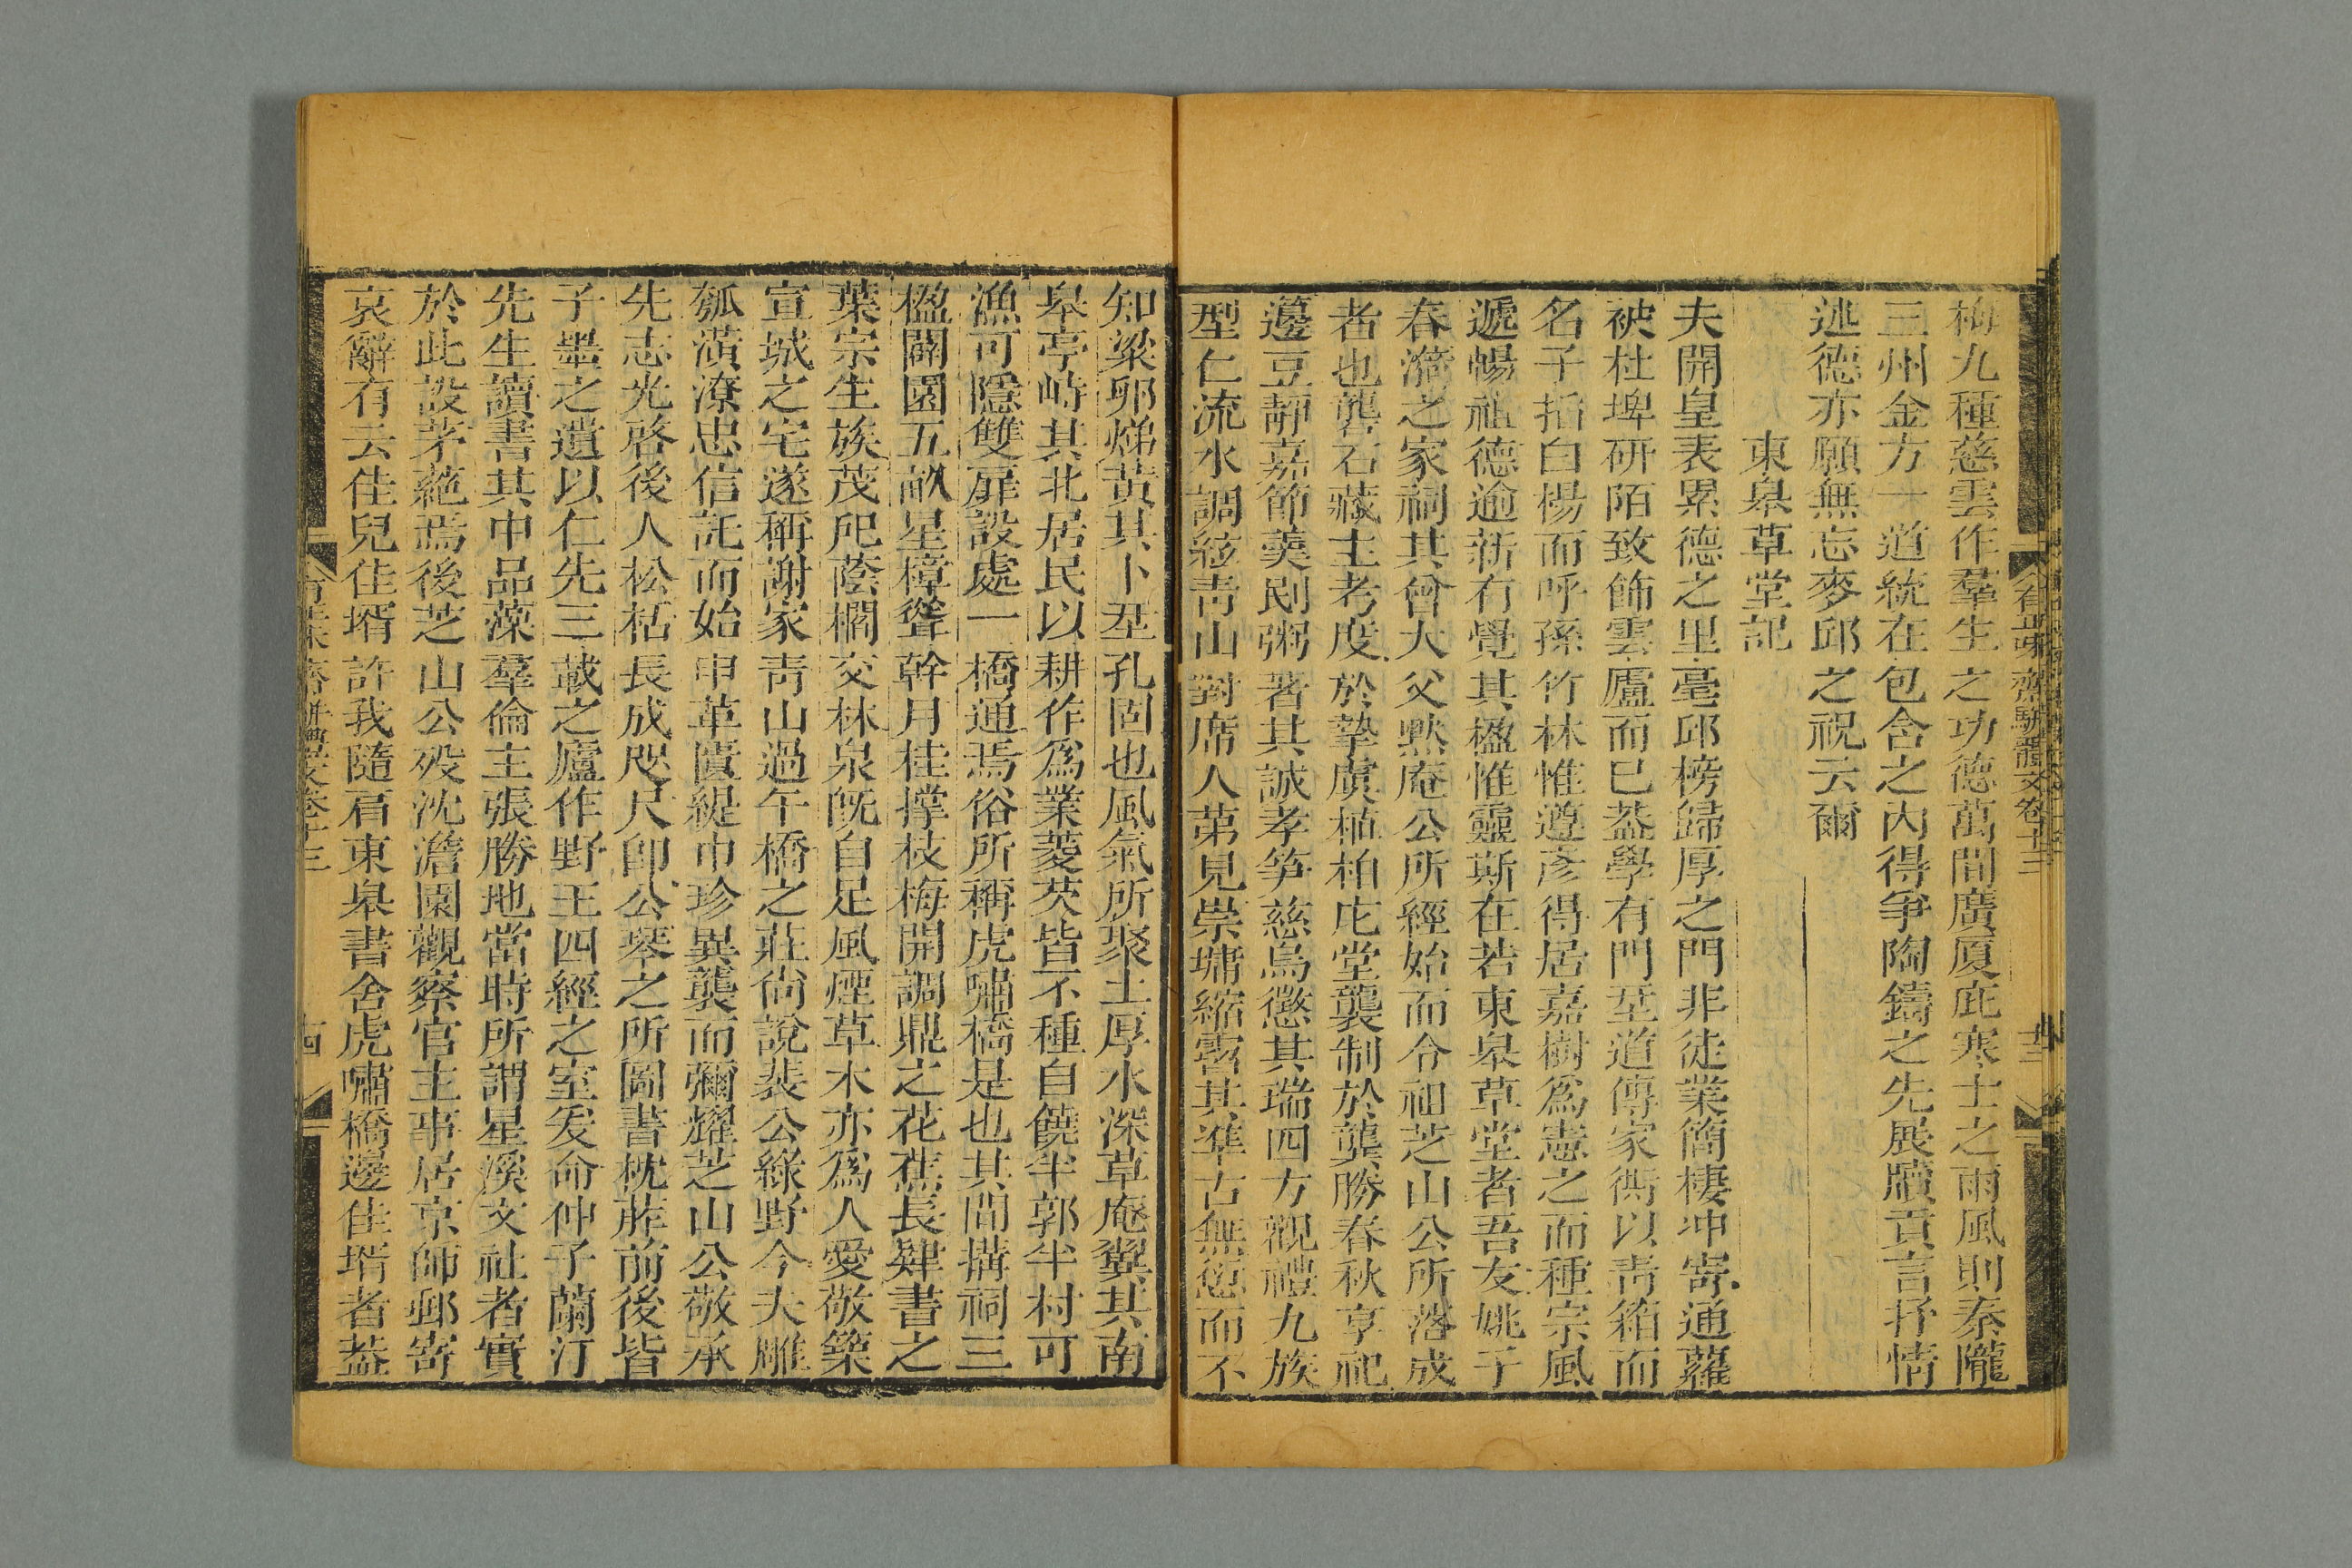 梅九種慈雲作羣生之功德萬間廣厦庇寒士之雨風則秦隴
三州金方一道統在包含之內得爭陶鑄之先展牘貢言抒情
述德亦願無忘麥邱之祝云爾
東臯草堂記
夫開皇表累德之里亳邱榜歸厚之門非徒業簡棲冲寄通蘿
袂杜埤研陌致飾雲廬而已葢學有門堊道傳家衖以靑箱而
名子掐白楊而呼孫竹林惟遵彥得居嘉樹爲憲之而種宗風
遞暢祖德逾新有覺其楹惟靈斯在若東臯草堂者吾友姚子
春漪之家祠其曾大父黙庵公所經始而令祖芝山公所落成
者也龔石藏主考度於摯虞植柏庀堂襲制於龔勝春秋享祀
籩豆靜嘉節羮別粥著其誠孝笋慈烏懲其瑞四方視禮九族
型仁流水調絃靑山對席人第見崇墉縮霤其準古無愆而不
知粱卵焍黃其卜壄孔固也風氣所聚土厚水深草庵翼其南
臯亭峙其北居民以耕作爲業菱芡皆不種自饒半郭半村可
漁可隱雙扉設處一橋通焉俗所稱虎嘯橋是也其間搆祠三
楹闢園五畝星樟聳幹月桂撐枝梅開調鼎之花蕉長肄書之
葉宗生族茂戺蔭櫩交林泉旣自足風煙草木亦爲人愛敬築
宣城之宅遂稱謝家靑山過午橋之莊尙說裴公綠野今夫雕
瓠潢潦忠信託而始申革匱緹巾珍異襲而彌耀芝山公敬承
先志光啓後人松栝長成咫尺卽公琴之所圖書枕葄前後皆
子墨之遺以仁先三載之廬作野王四經之室爰命仲子蘭汀
先生讀書其中品藻羣倫主張勝地當時所謂星溪文社者實
於此設茅蕝焉後芝山公歿沈澹園觀察官主事居京師郵寄
哀辭有云佳兒佳壻許我隨肩東臯書舍虎嘯橋邊佳壻者葢